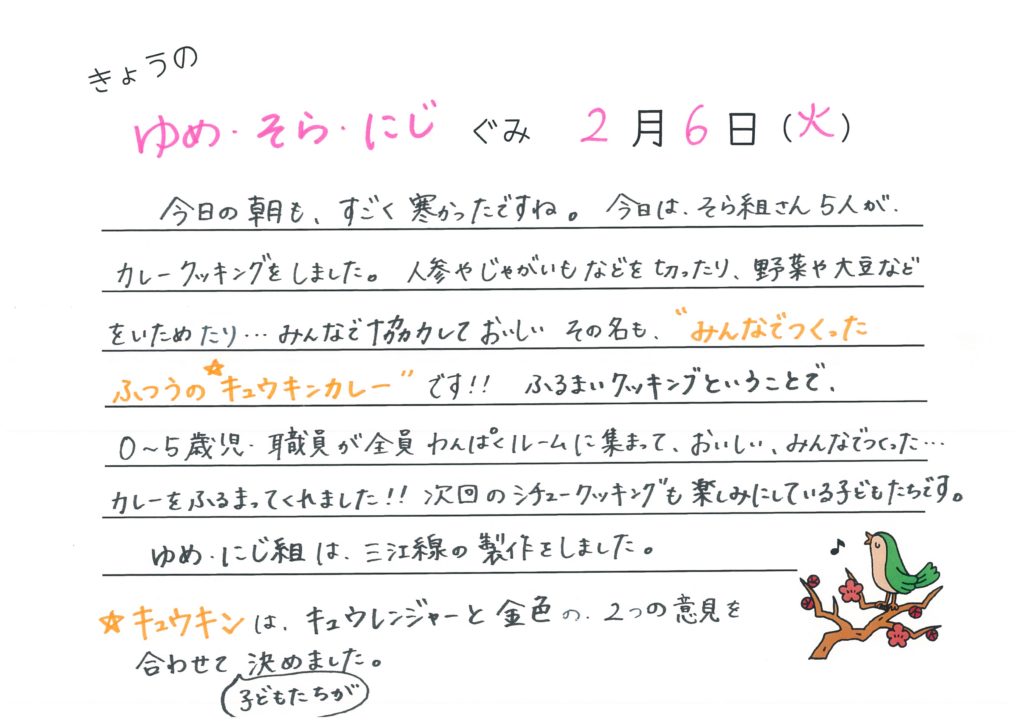 きょうの
ゆめ・そら・にじ ぐみ 2月6日(火)
今日の朝も、すごく寒かったですね。今日は、そら組さん5人が、
カレークッキングをしました。人参やじゃがいもなどを切ったり、野菜や大豆など
をいためたり…みんなで協力しておいしい その名も、“みんなでつくった
ふつうの☆キュウキンカレー”です!! ふるまいクッキングということで、
0~5歳児・職員が全員わんぱくルームに集まって、おいしい、みんなでつくった…
カレーをふるまってくれました!! 次回のシチュークッキングも楽しみにしている子どもたちです。
ゆめ・にじ組は、三江線の製作をしました。
☆キュウキンは、キュウレンジャーと金色の、2つの意見を
合わせて決めました。
子どもたちが